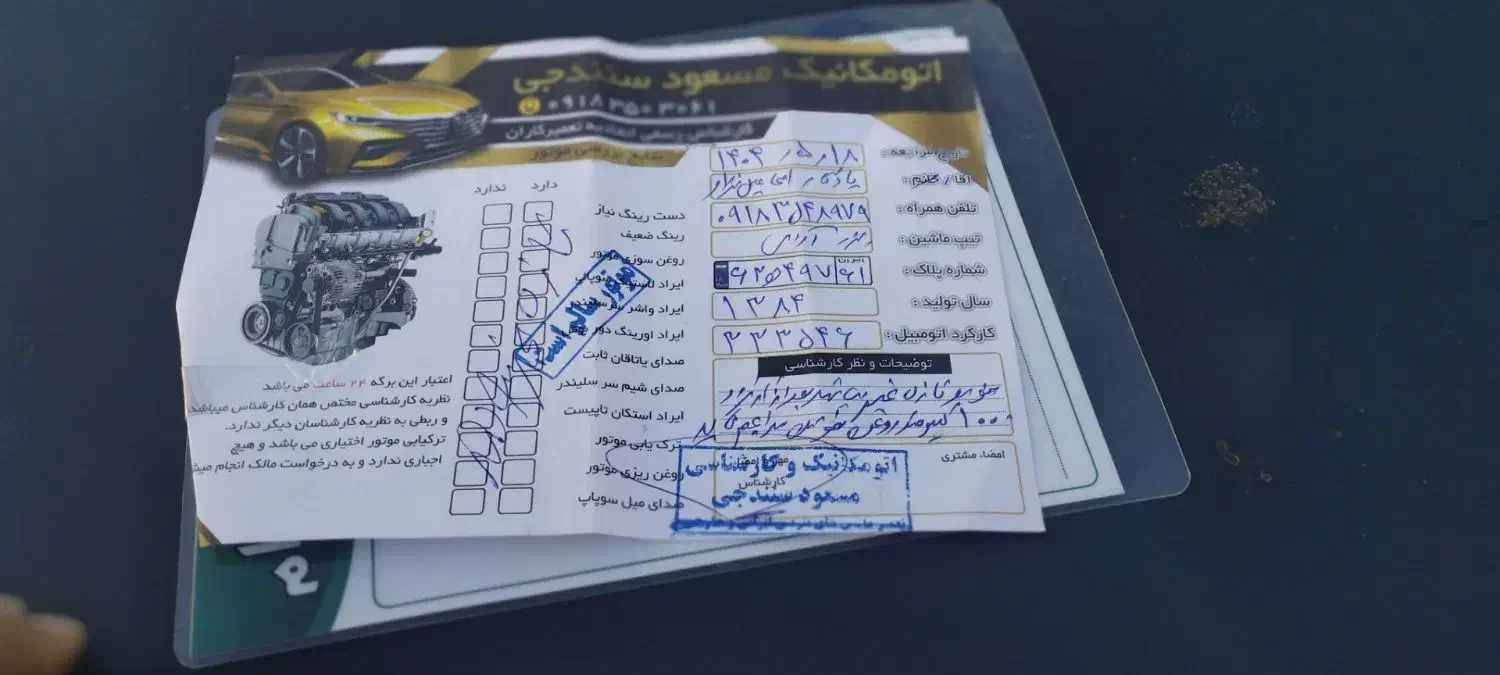 اتومکانیک مسعود سنندجی
۰۹۱۸۳۵۰۳۰۶۱
کارشناس رسمی اتحادیه تعمیرکاران
نتایج بررسی موتور
تاریخ مراجعه: ۱۴۰۴/۵/۱۸
آقا / خانم:
تلفن همراه: ۰۹۱۸۳۵۴۸۹۷۹
تیپ ماشین: پژو آردی
شماره پلاک: ۴۹۷ ایران ۶۱
سال تولید: ۱۳۸۴
کارکرد اتومبیل: ۲۲۳۵۴۶
توضیحات و نظر کارشناسی
۱۰۰۰ کیلومتر روغن
امضاء مشتری
مهر و امضاء
کارشناس
دارد ندارد
دست رینگ نیاز
رینگ ضعیف
روغن سوزی موتور
ایراد لاستیک
ایراد واشر سرسیلندر
ایراد اورینگ دور بوش
صدای یاتاقان ثابت
صدای شیم سر سلیندر
ایراد استکان تایپیت
ترک یابی موتور
روغن ریزی موتور
صدای میل سوپاپ
موتور سالم است
اتومکانیک و کارشناسی
مسعود سنندجی
اعتبار این برگه ۲۴ ساعت می باشد
نظریه کارشناسی مختص همان کارشناس میباشد
و ربطی به نظریه کارشناسان دیگر ندارد.
ترکیابی موتور اختیاری می باشد و هیچ
اجباری ندارد و به درخواست مالک انجام میش